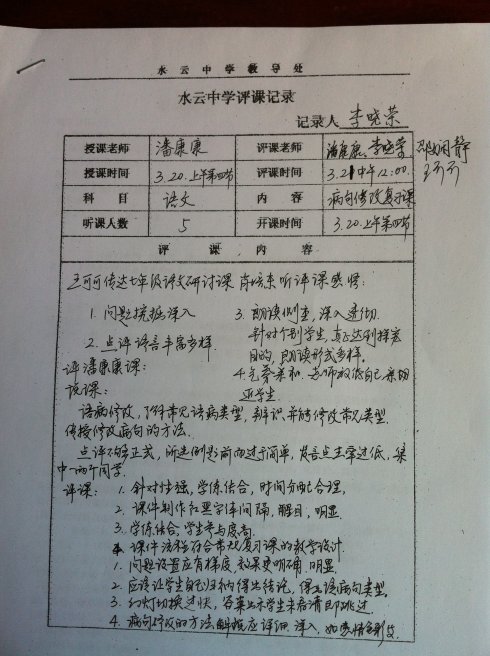 水云中学教导处
水云中学评课记录
记录人 李晓荣
授课老师 潘康康 评课老师 潘康康、李晓荣、邵润静
授课时间 3.20.上午第四节 评课时间 3.21中午12:00. 王可可
科目 语文 内容 病句修改复习课
听课人数 5 开课时间 3.20.上午第四节
评课内容
王可可传达七年级语文研讨课 听评课感悟:
1. 问题挖掘深入 3. 朗读侧重,深入透彻.
针对个别学生,真正达到
2. 点评语言丰富多样 目的,朗读形式多样。
评潘康康课: 4. 老师放低自己,亲
说课: 学生
语病修改,了解常见语病类型,辨识并修改常见类型.
传授修改病句的方法.
点评不够正式,所选例题前面过于简单,发言点击率过低,集
中一两个同学.
评课: 1. 针对性强,学练结合,时间分配合理,
2. 课件制作红黑字体间隔,醒目,明显.
3. 学练结合,学生参与度高.
4. 课件流程符合常规复习课的教学设计.
1. 问题设置应有梯度,效果更明确,明显.
2. 应该让学生自己归纳得出结论,得出语病句类型.
3. 幻灯切换过快,答案出示学生未看清即跳过
4. 病句修改的方法 应详细.深入,如